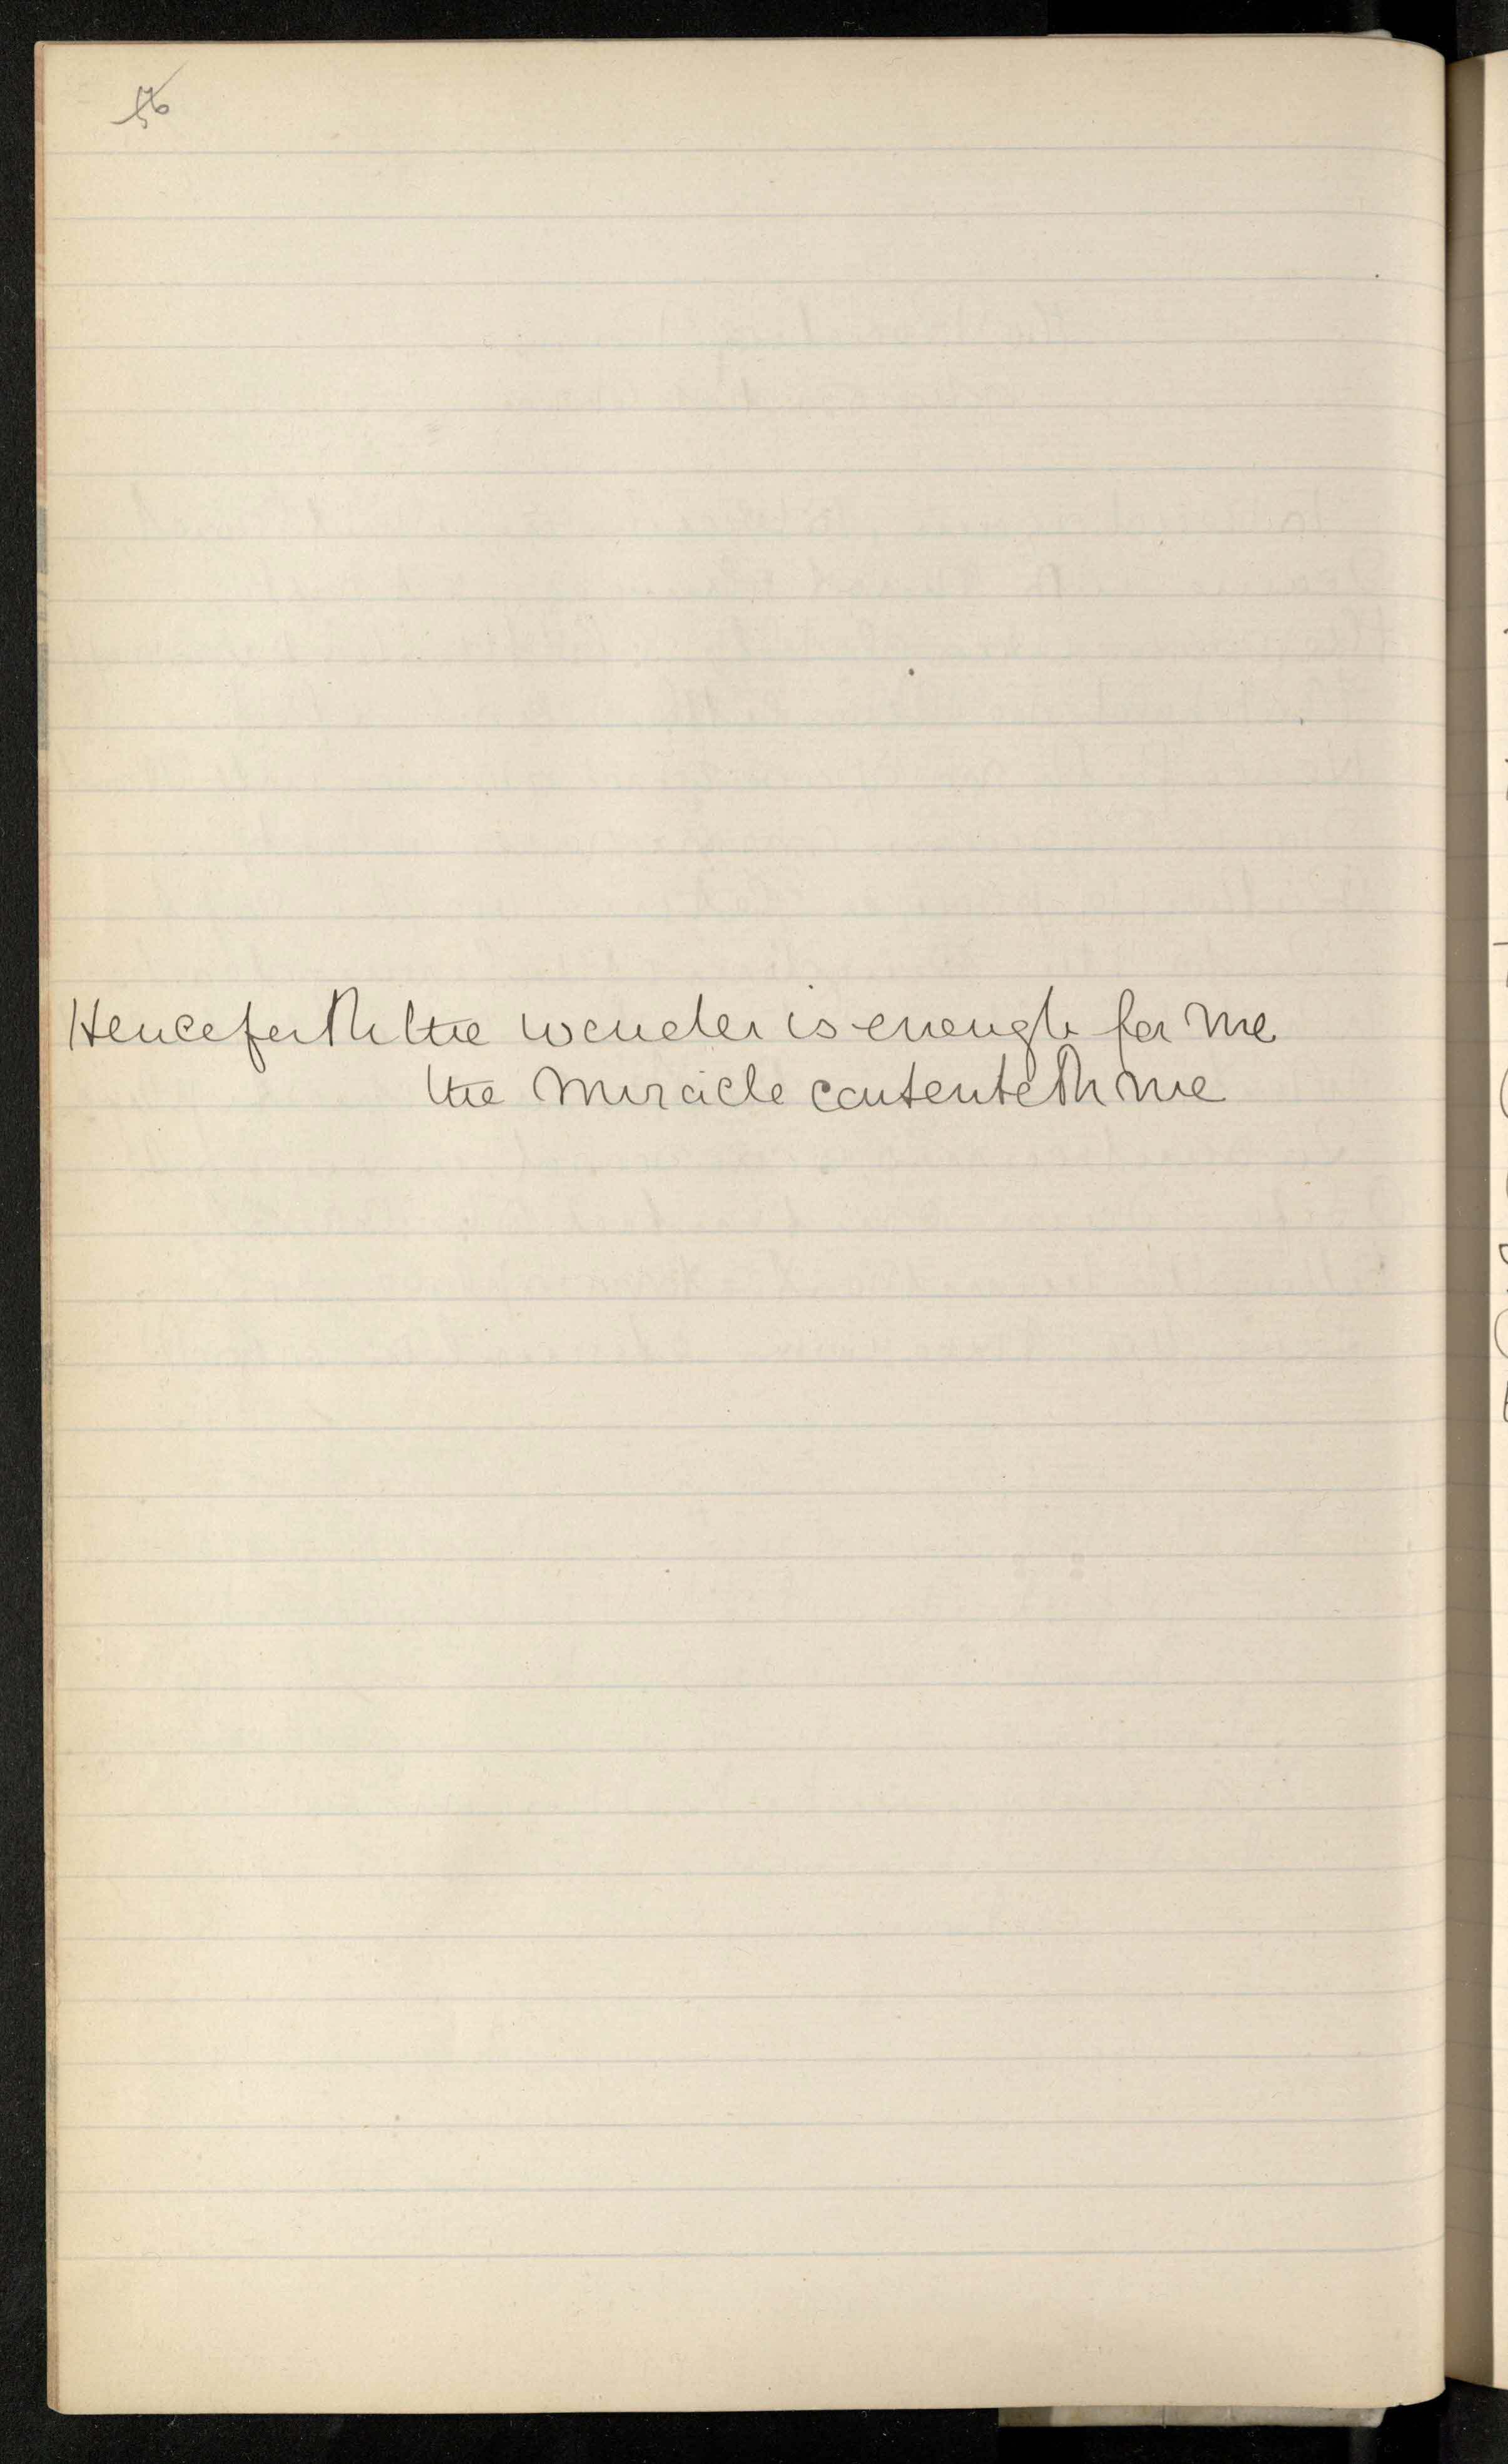 56
Henceforth the wonder is enough for me
the miracle contenteth me